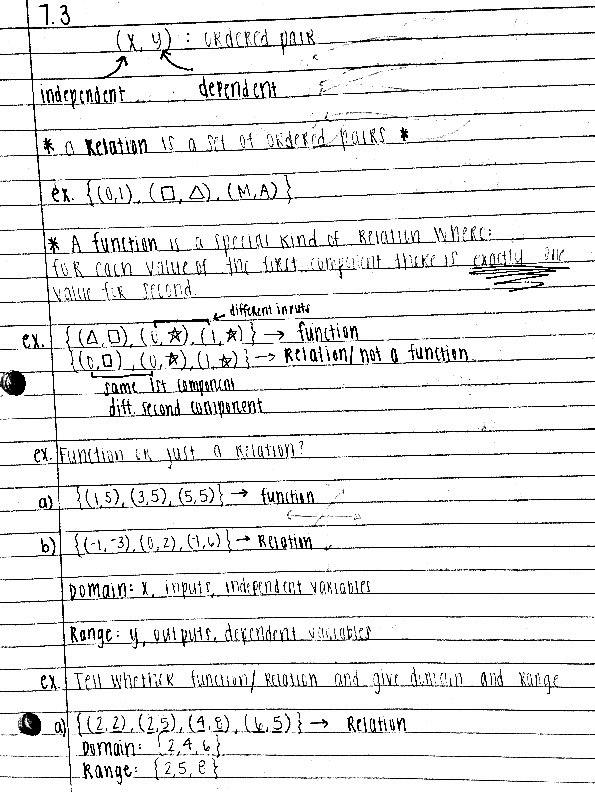 7.3
(x, y) : ordered pair
independent dependent
* a Relation is a set of ordered pairs *
ex. {(0,1), (□, △), (M,A)}
* A function is a special kind of Relation where:
for each value of the first component there is exactly one
value for second.
← different inputs
ex. {(△, □), (0, ☆), (1, ☆)} → function
{(0, □), (0, ☆), (1, ☆)} → Relation/not a function
same 1st component
diff. second component
ex. Function or just a relation?
a) {(1,5), (3,5), (5,5)} → function
b) {(-1,-3), (0,2), (-1,6)} → Relation
Domain: x, inputs, independent variables
Range: y, outputs, dependent variables
ex. Tell whether function/Relation and give domain and Range
a) {(2,2), (2,5), (4,8), (6,5)} → Relation
Domain: {2,4,6}
Range: {2,5,8}